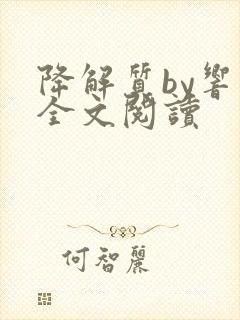 降解質by響
全文閱讀
何智麗